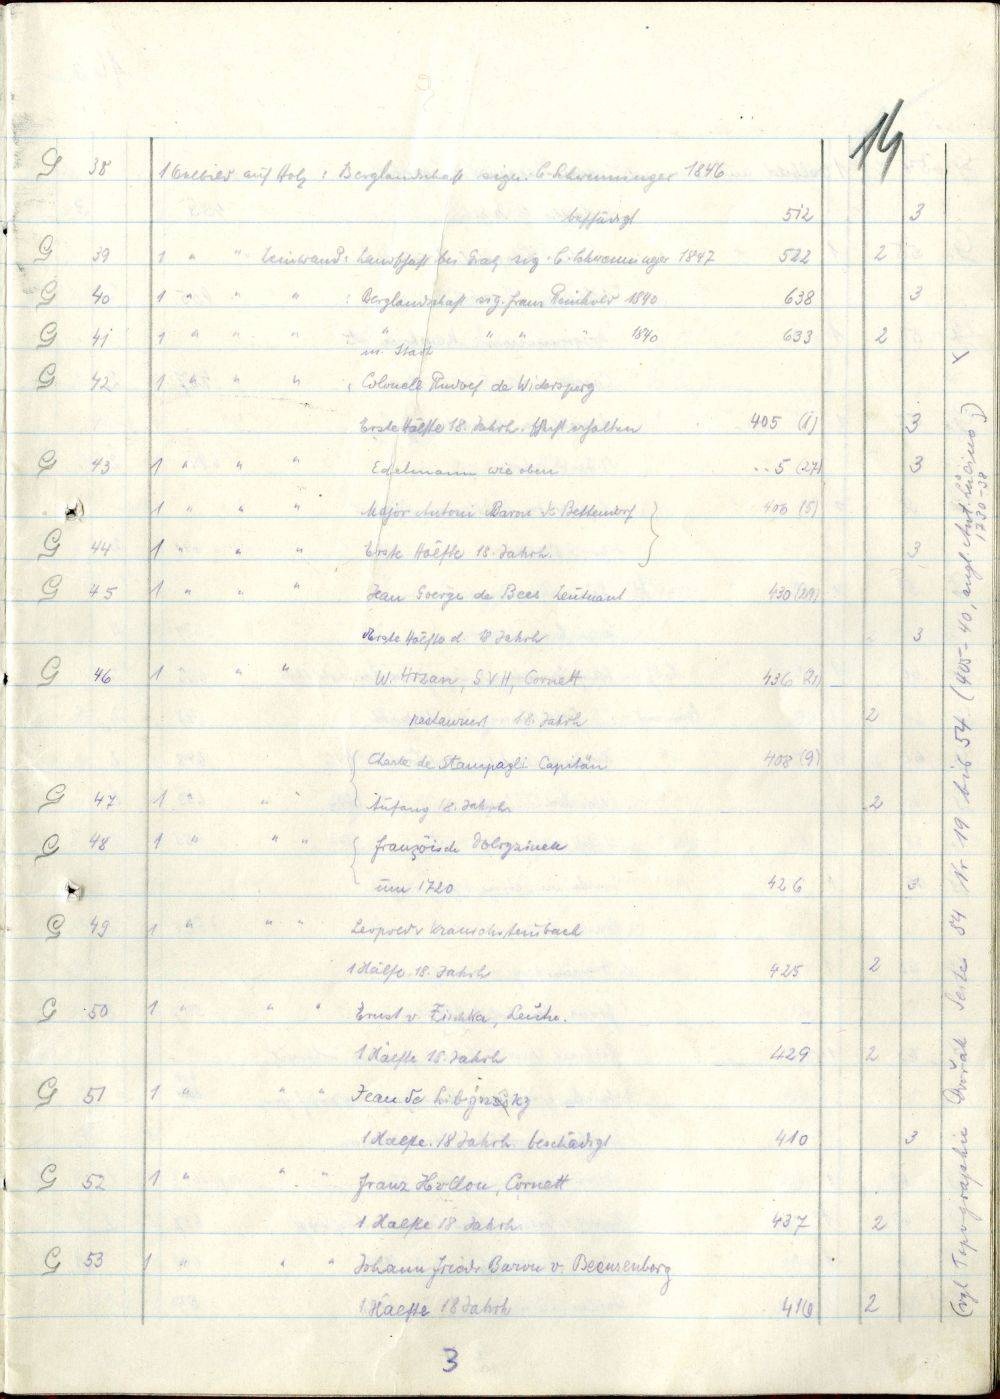 14
G 38 1 Oelbild auf Holz : Berglandschaft sign. C. Schwenninger 1846
beschädigt 512 3
G 39 1 " " Leinwand: Landschaft bei sig. C. Schwenninger 1847 522 2
G 40 1 " " " : Berglandschaft sig. Franz Reinhold 1840 638 3
G 41 1 " " " " " " 1840 633 2
m. Stadt
G 42 1 " " " : Colonell Rudolf de Widersperg
Erste Hälfte 18. Jahrh. schlecht erhalten 405 (1) 3
G 43 1 " " " Edelmann wie oben . . 5 (27) 3
1 " " " Major Antoni Baron de Bettendorf 406 (5)
G 44 1 " " " Erste Hälfte 18. Jahrh. 3
G 45 1 " " " Jean Goerge de Bees Leutnant 430 (29)
Erste Hälfte d. 18 Jahrh 3
G 46 1 " " " W. , S V H, Cornett 436 (21)
restauriert 18. Jahrh 2
de Stampagli Capitän 408 (9)
G 47 1 " " " Anfang 18. Jahrh 2
G 48 1 " " " Französische
um 1720 426 3
G 49 1 " " " Leopold v
1 Hälfte 18. Jahrh 425 2
G 50 1 " " " Ernst v. Zischka, Leutn.
1 Haelfte 18. Jahrh 429 2
G 51 1 " " " Jean de
1 Haelfte. 18 Jahrh. beschädigt 410 3
G 52 1 " " " Franz Hollou, Cornett
1 Haelfte 18 Jahrh 437 2
G 53 1 " " " Johann Friedr Baron v.
1 Haelfte 18 Jahrh 416 2
3
(vgl Topographie Dvořák Seite 54 Nr 19 bis 54 (405-40, angl. Ant. )
1730-38